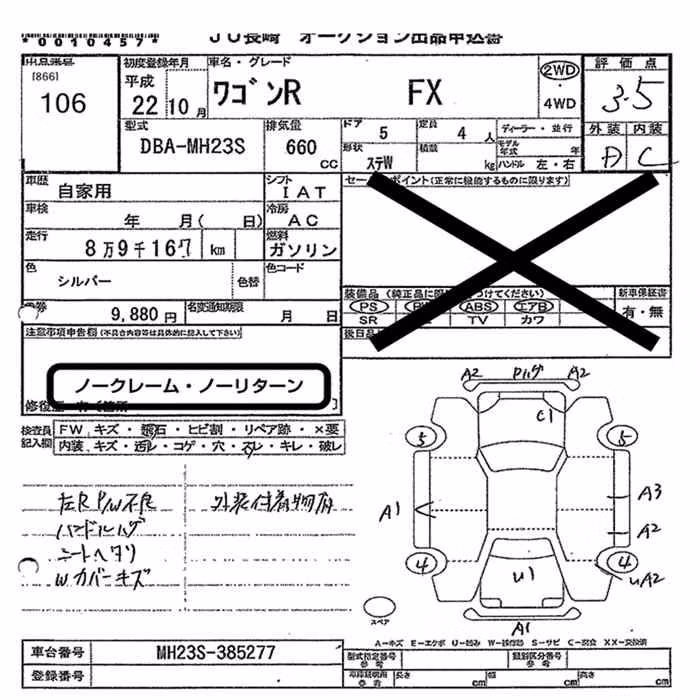 *0010457* JU長崎 オークション出品申込書
出品番号 初度登録年月 車名・グレード 評価点
[866] 平成 2WD
106 22 10月 ワゴンR FX ・ 4WD 3.5
型式 排気量 ドア 5 定員 4人 ディーラー・並行 外装 内装
DBA-MH23S 660 CC 形状 ステW 積載 kg モデル年式 年 D C
ハンドル 左・右
車歴 自家用 シフト IAT セールスポイント(正常に機能するものに限ります)
車検 年 月( 日) 冷房 AC
走行 8万9千167 km 燃料 ガソリン
色 シルバー 色替 色コード
装備品 (純正品に限 つけてください) 新車保証書
9,880円 名変通知期限 月 日 PS ABS エアB 有・無
SR TV カワ
注意事項申告欄(不具合内容等は具体的に記入して下さい) 後日品
ノークレーム・ノーリターン
検査員記入欄 FW キズ・飛石・ヒビ割・リペア跡・×要
内装 キズ・汚レ・コゲ・穴・スレ・キレ・破レ
左R P/W不良 外装付着物有
ハンドルハゲ
シートヘタリ
Wカバーキズ
A2 ハゲ A2
C1
5 5
A1 A3
A2
4 4
U1 UA2
A1
スペア
A-キズ E-エクボ U-凹み W-補修跡 S-サビ C-腐食 XX-交換済
車台番号 MH23S-385277 型式指定番号 参考 類別区分番号 参考
登録番号 車庫証明用 参考 長さ cm 幅 cm 高さ cm